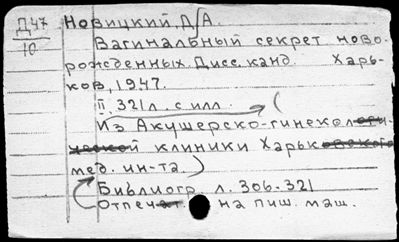 Д47
10
Новицкий, Д. А.
Вагинальный секрет ново-
рожденных. Дисс. канд. Харь-
ков, 1947.
II, 321 л. с илл.
Из Акушерско-гинекологи-
ческой клиники Харьковского
мед. ин-та.)
Библиогр. л. 306-321
Отпечат. на пиш. маш.